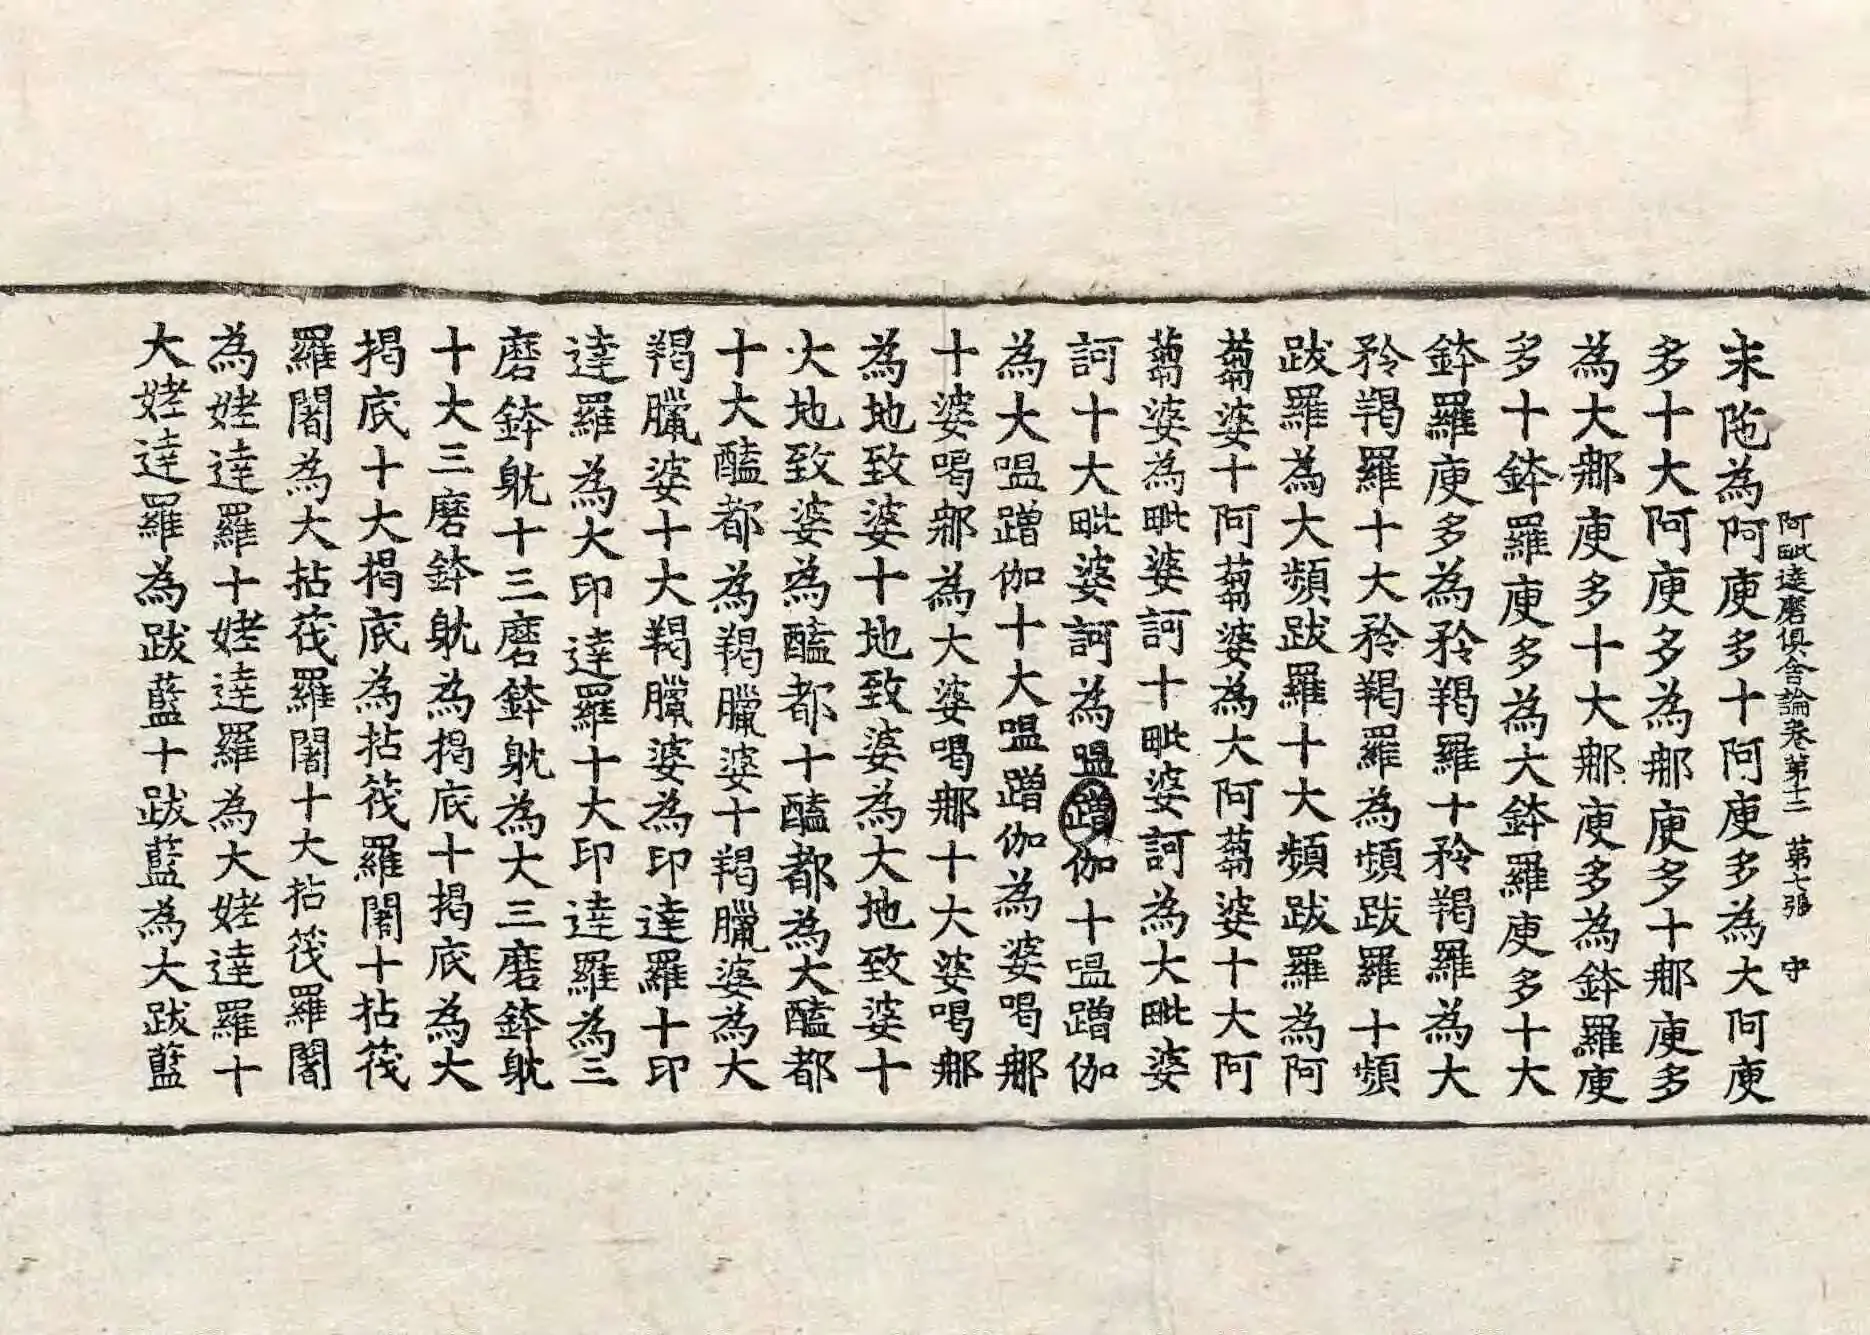 阿毗達磨俱舍論卷第十二 第七張 守
末陁為阿庾多十阿庾多為大阿庾
多十大阿庾多為那庾多十那庾多
為大那庾多十大那庾多為鉢羅庾
多十鉢羅庾多為大鉢羅庾多十大
鉢羅庾多為矜羯羅十矜羯羅為大
矜羯羅十大矜羯羅為頻跋羅十頻
跋羅為大頻跋羅十大頻跋羅為阿
蒭婆十阿蒭婆為大阿蒭婆十大阿
蒭婆為毗婆訶十毗婆訶為大毗婆
訶十大毗婆訶為嗢蹭伽十嗢蹭伽
為大嗢蹭伽十大嗢蹭伽為婆喝那
十婆喝那為大婆喝那十大婆喝那
為地致婆十地致婆為大地致婆十
火地致婆為醯都十醯都為大醯都
十大醯都為羯臘婆十羯臘婆為大
羯臘婆十大羯臘婆為印達羅十印
達羅為大印達羅十大印達羅為三
磨鉢躭十三磨鉢躭為大三磨鉢躭
十大三磨鉢躭為揭底十揭底為大
揭底十大揭底為拈筏羅闍十拈筏
羅闍為大拈筏羅闍十大拈筏羅闍
為姥達羅十姥達羅為大姥達羅十
大姥達羅為跋藍十跋藍為大跋藍